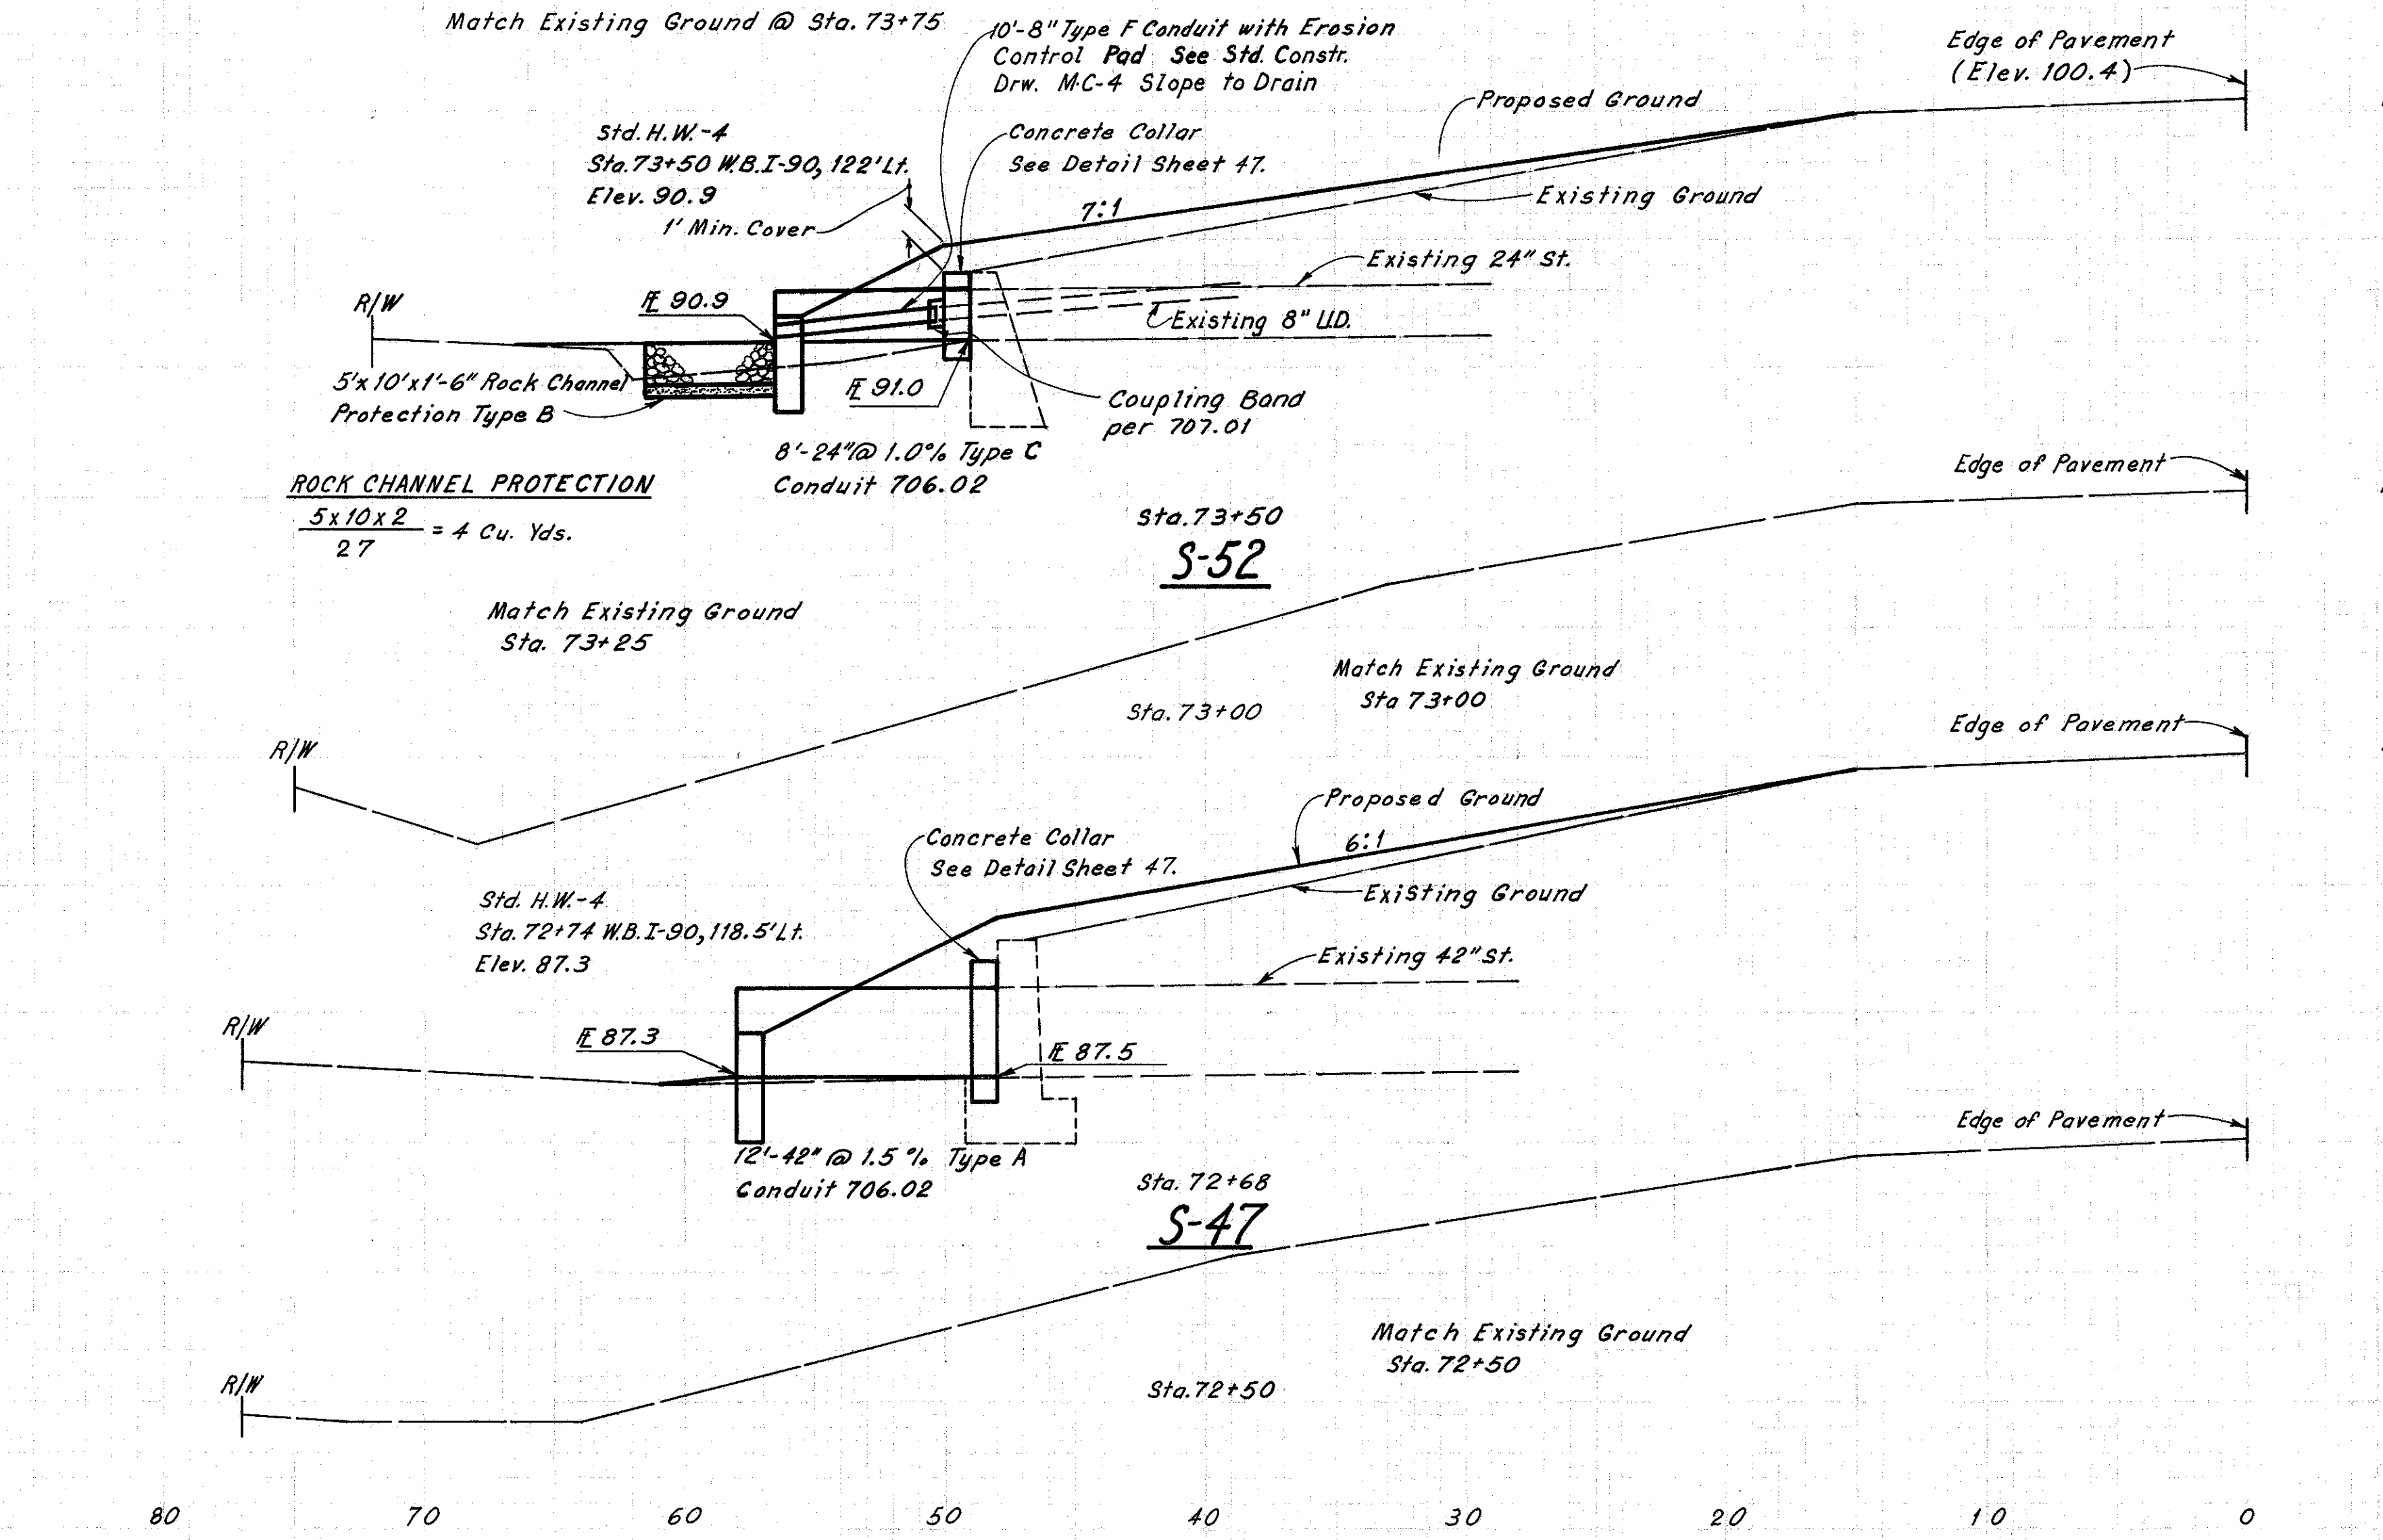 Match Existing Ground @ Sta. 73+75
10'-8" Type F Conduit with Erosion
Control Pad See Std. Constr.
Drw. M.C-4 Slope to Drain
Edge of Pavement
(Elev. 100.4)
Proposed Ground
Std. H.W.-4
Sta. 73+50 W.B.I-90, 122' Lt.
Elev. 90.9
1' Min. Cover
Concrete Collar
See Detail Sheet 47.
7:1
Existing Ground
Existing 24" St.
R/W
FL 90.9
Existing 8" U.D.
5'x10'x1'-6" Rock Channel
Protection Type B
FL 91.0
Coupling Band
per 707.01
8'-24" @ 1.0% Type C
Conduit 706.02
ROCK CHANNEL PROTECTION
5x10x2
27
= 4 Cu. Yds.
Edge of Pavement
Sta. 73+50
S-52
Match Existing Ground
Sta. 73+25
Match Existing Ground
Sta 73+00
Sta. 73+00
Edge of Pavement
R/W
Proposed Ground
6:1
Concrete Collar
See Detail Sheet 47.
Existing Ground
Std. H.W.-4
Sta. 72+74 W.B.I-90, 118.5' Lt.
Elev. 87.3
Existing 42" St.
R/W
FL 87.3
FL 87.5
Edge of Pavement
12'-42" @ 1.5% Type A
Conduit 706.02
Sta. 72+68
S-47
Match Existing Ground
Sta. 72+50
Sta. 72+50
R/W
80 70 60 50 40 30 20 10 0